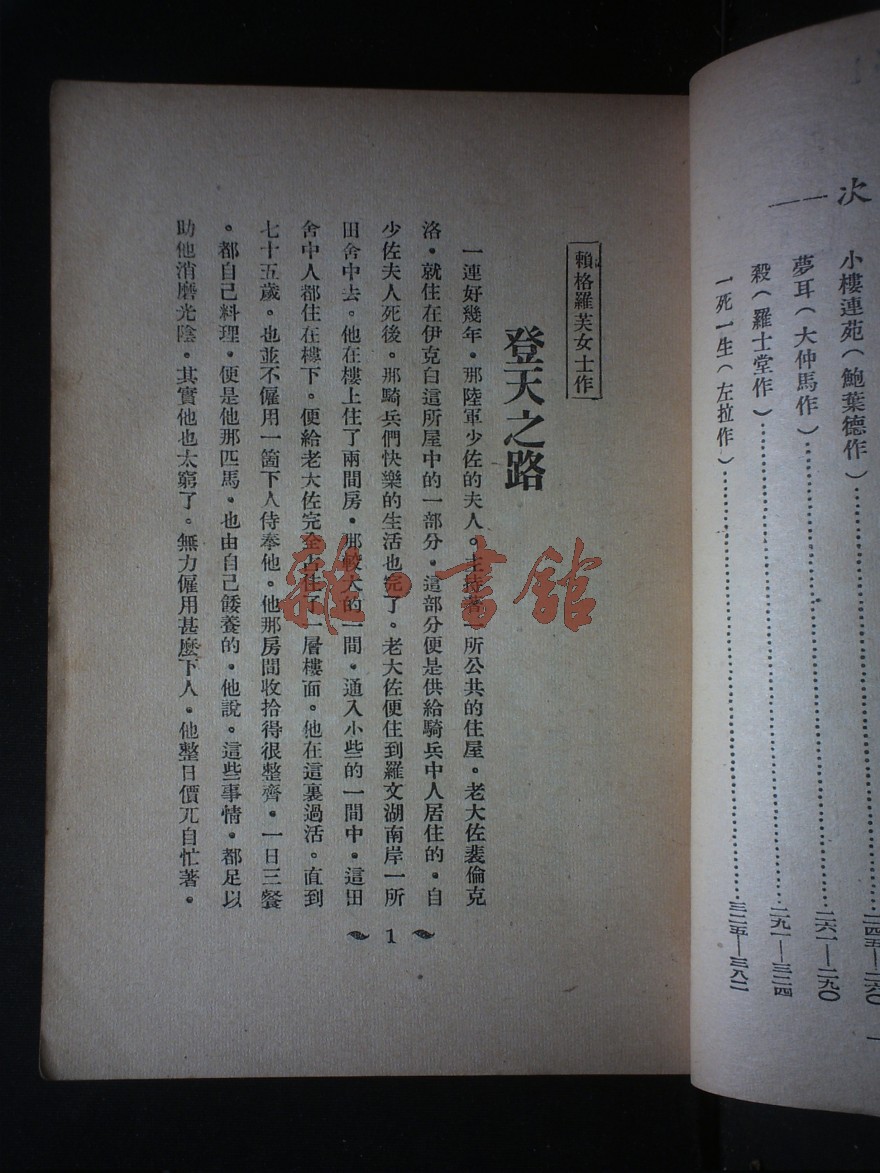 次
一一
小樓連苑（鮑葉德作）……二四五—二六〇
夢耳（大仲馬作）……二六一—二九〇
殺（羅士堂作）……二九一—三二四
一死一生（左拉作）……三二五—三八二
賴格羅芙女士作
登天之路
一連好幾年。那陸軍少佐的夫人。主持著一所公共的住屋。老大佐裴倫克
洛。就住在伊克白這所屋中的一部分。這部分便是供給騎兵中人居住的。自
少佐夫人死後。那騎兵們快樂的生活也完了。老大佐便住到羅文湖南岸一所
田舍中去。他在樓上住了兩間房。那較大的一間。通入小些的一間中。這田
舍中人都住在樓下。便給老大佐完全占住了一層樓面。他在這裏過活。直到
七十五歲。也並不僱用一箇下人侍奉他。他那房間收拾得很整齊。一日三餐
。都自己料理。便是他那匹馬。也由自己餧養的。他說。這些事情。都足以
助他消磨光陰。其實他也太窮了。無力僱用甚麼下人。他整日價兀自忙著。
1
雜·書館